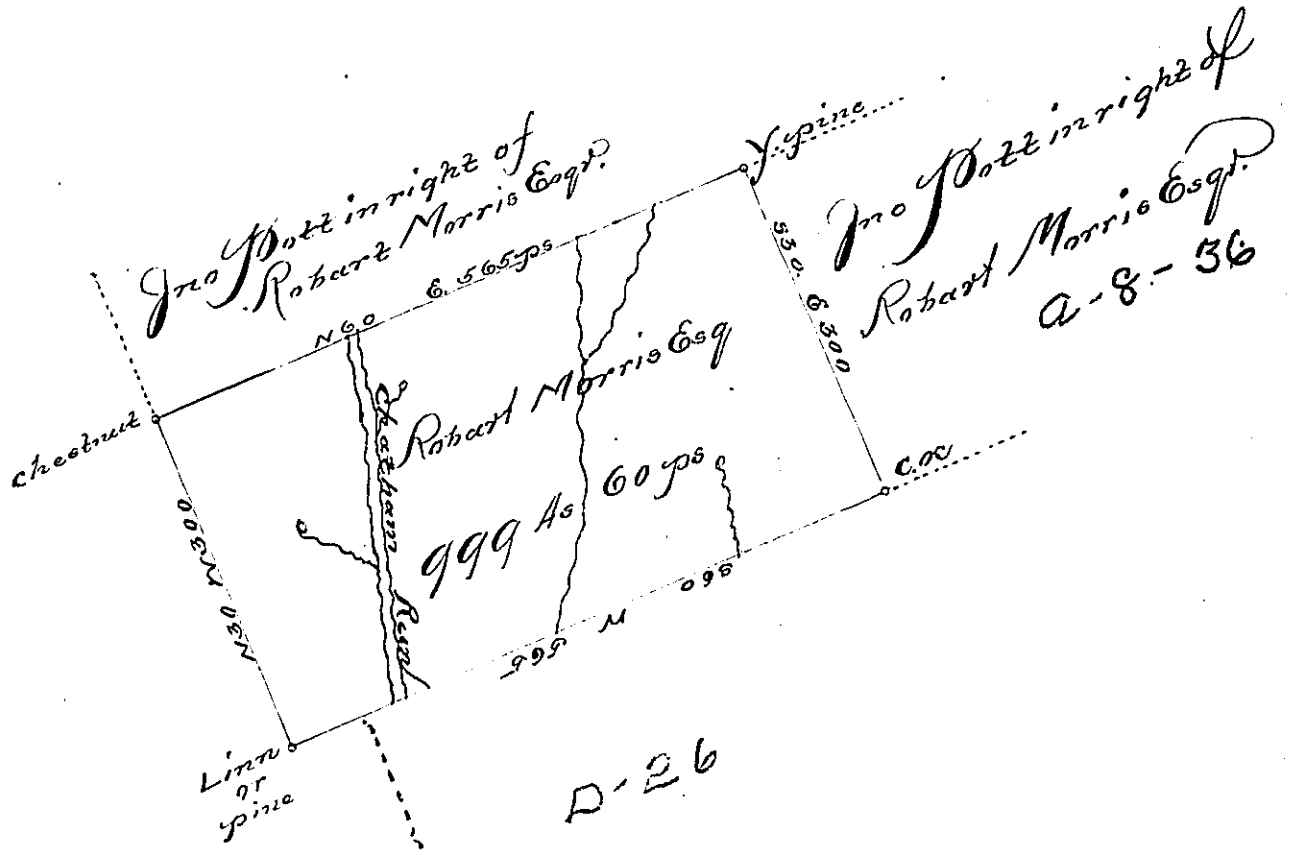 Jno Pott in right of
Robart Morris Esqr.
y. pine
Jno Pott in right of
Robart Morris Esqr.
a-8-36
chestnut
N 60 E. 565 ps
S 30. E 300
Chatham Run
Robart Morris Esq
999 As 60 ps
N 30 W 300
S 60 W 565
Linn
or
pine
D-26